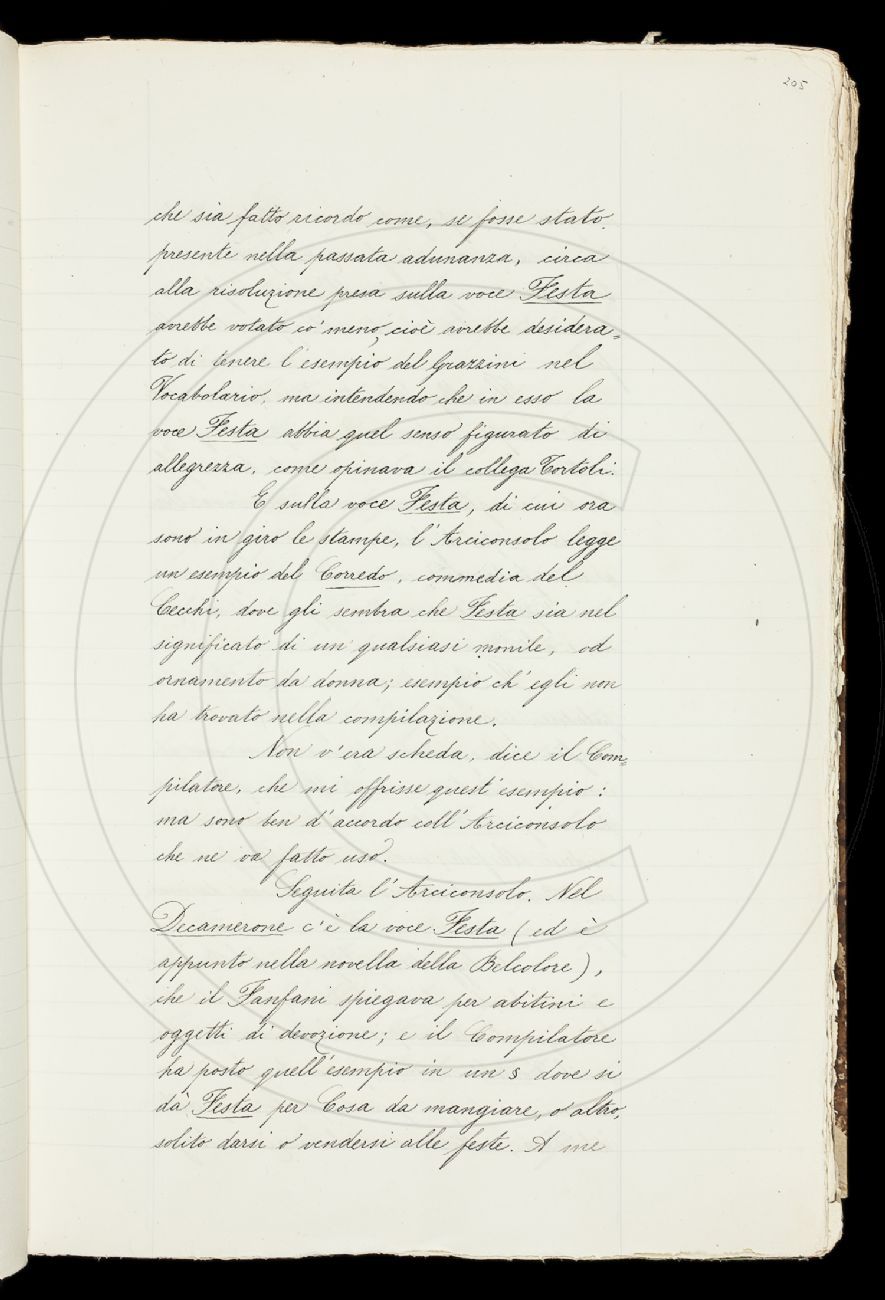 205
che sia fatto ricordo come, se fosse stato
presente nella passata adunanza, circa
alla risoluzione presa sulla voce Festa
avrebbe votato co' meno, cioè avrebbe desidera=
to di tenere l'esempio del Grazzini nel
Vocabolario, ma intendendo che in esso la
voce Festa abbia quel senso figurato di
allegrezza, come opinava il collega Tortoli.
E sulla voce Festa, di cui ora
sono in giro le stampe, l'Arciconsolo legge
un esempio del Corredo, commedia del
Cecchi, dove gli sembra che Festa sia nel
significato di un qualsiasi monile, od
ornamento da donna; esempio ch'egli non
ha trovato nella compilazione.
Non v'era scheda, dice il Com=
pilatore, che mi offrisse quest'esempio:
ma sono ben d'accordo coll'Arciconsolo
che ne va fatto uso.
Seguita l'Arciconsolo. Nel
Decamerone c'è la voce Festa (ed è
appunto nella novella della Belcolore),
che il Fanfani spiegava per abitini e
oggetti di devozione; e il Compilatore
ha posto quell'esempio in un § dove si
dà Festa per Cosa da mangiare, o altro,
solito darsi o vendersi alle feste. A me